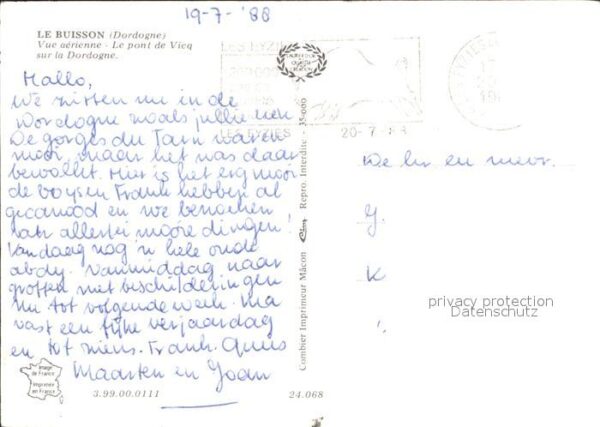 19-7-'88
LE BUISSON (Dordogne)
Vue aérienne - Le pont de Vicq
sur la Dordogne.
Hallo,
We zitten nu in de
Dordogne zoals jullie
De gorges du Tarn waren
mooi maar het was daar
bewolkt. Hier is het erg mooi
de boys en Frank hebben al
gecanood en we
allerlei mooie dingen!
Vandaag nog 'n hele oude
abdy. Vanmiddag naar
grotten met beschilderingen
nu tot volgende week. Ma
vast een fijne verjaardag
en tot ziens. Frank.
Maarten en Joan
LES EYZIES
LES EYZIES
20-7-88
Combier Imprimeur Mâcon
Repro. Interdite. - 35-000
De hr en mevr.
J.
K
privacy protection
Datenschutz
image
de France
Imprimée
en France
3.99.00.0111
24.068